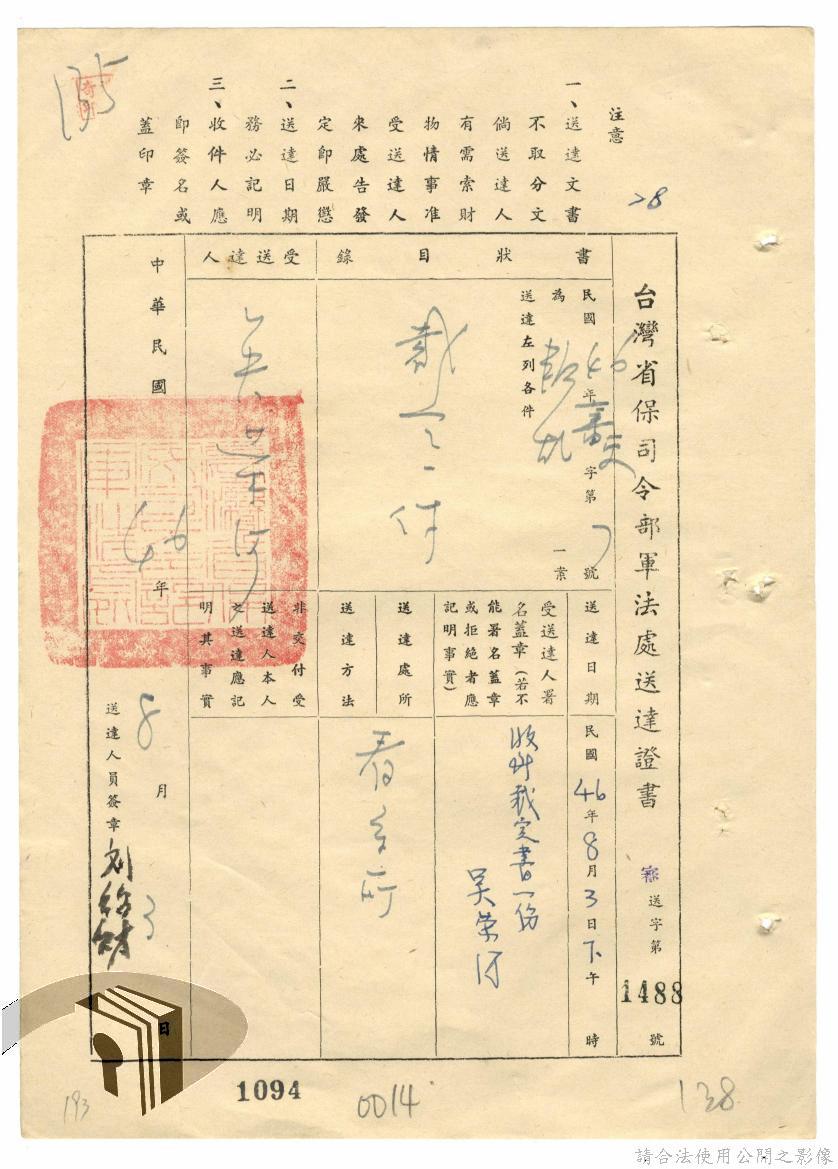 台灣省保司令部軍法處送達證書
審送字第1488號
注意
一、送達文書
不取分文
倘送達人
有需索財
物情事准
受送達人
來處告發
定即嚴懲
二、送達日期
務必記明
三、收件人應
即簽名或
蓋印章
書狀目錄
民國46年審字第號
為
一案
送達左列各件
裁定一件
受送達人
吳榮河
送達日期
民國46年8月3日下午時
受送達人署
名蓋章(若不
能署名蓋章
或拒絕者應
記明事實)
收到裁定書一份
吳榮河
送達處所
送達方法
看守所
非交付受
送達人本人
之送達應記
明其事實
中華民國46年8月3日
送達人員簽章
135
28
193
1094
0014
138
請合法使用公開之影像